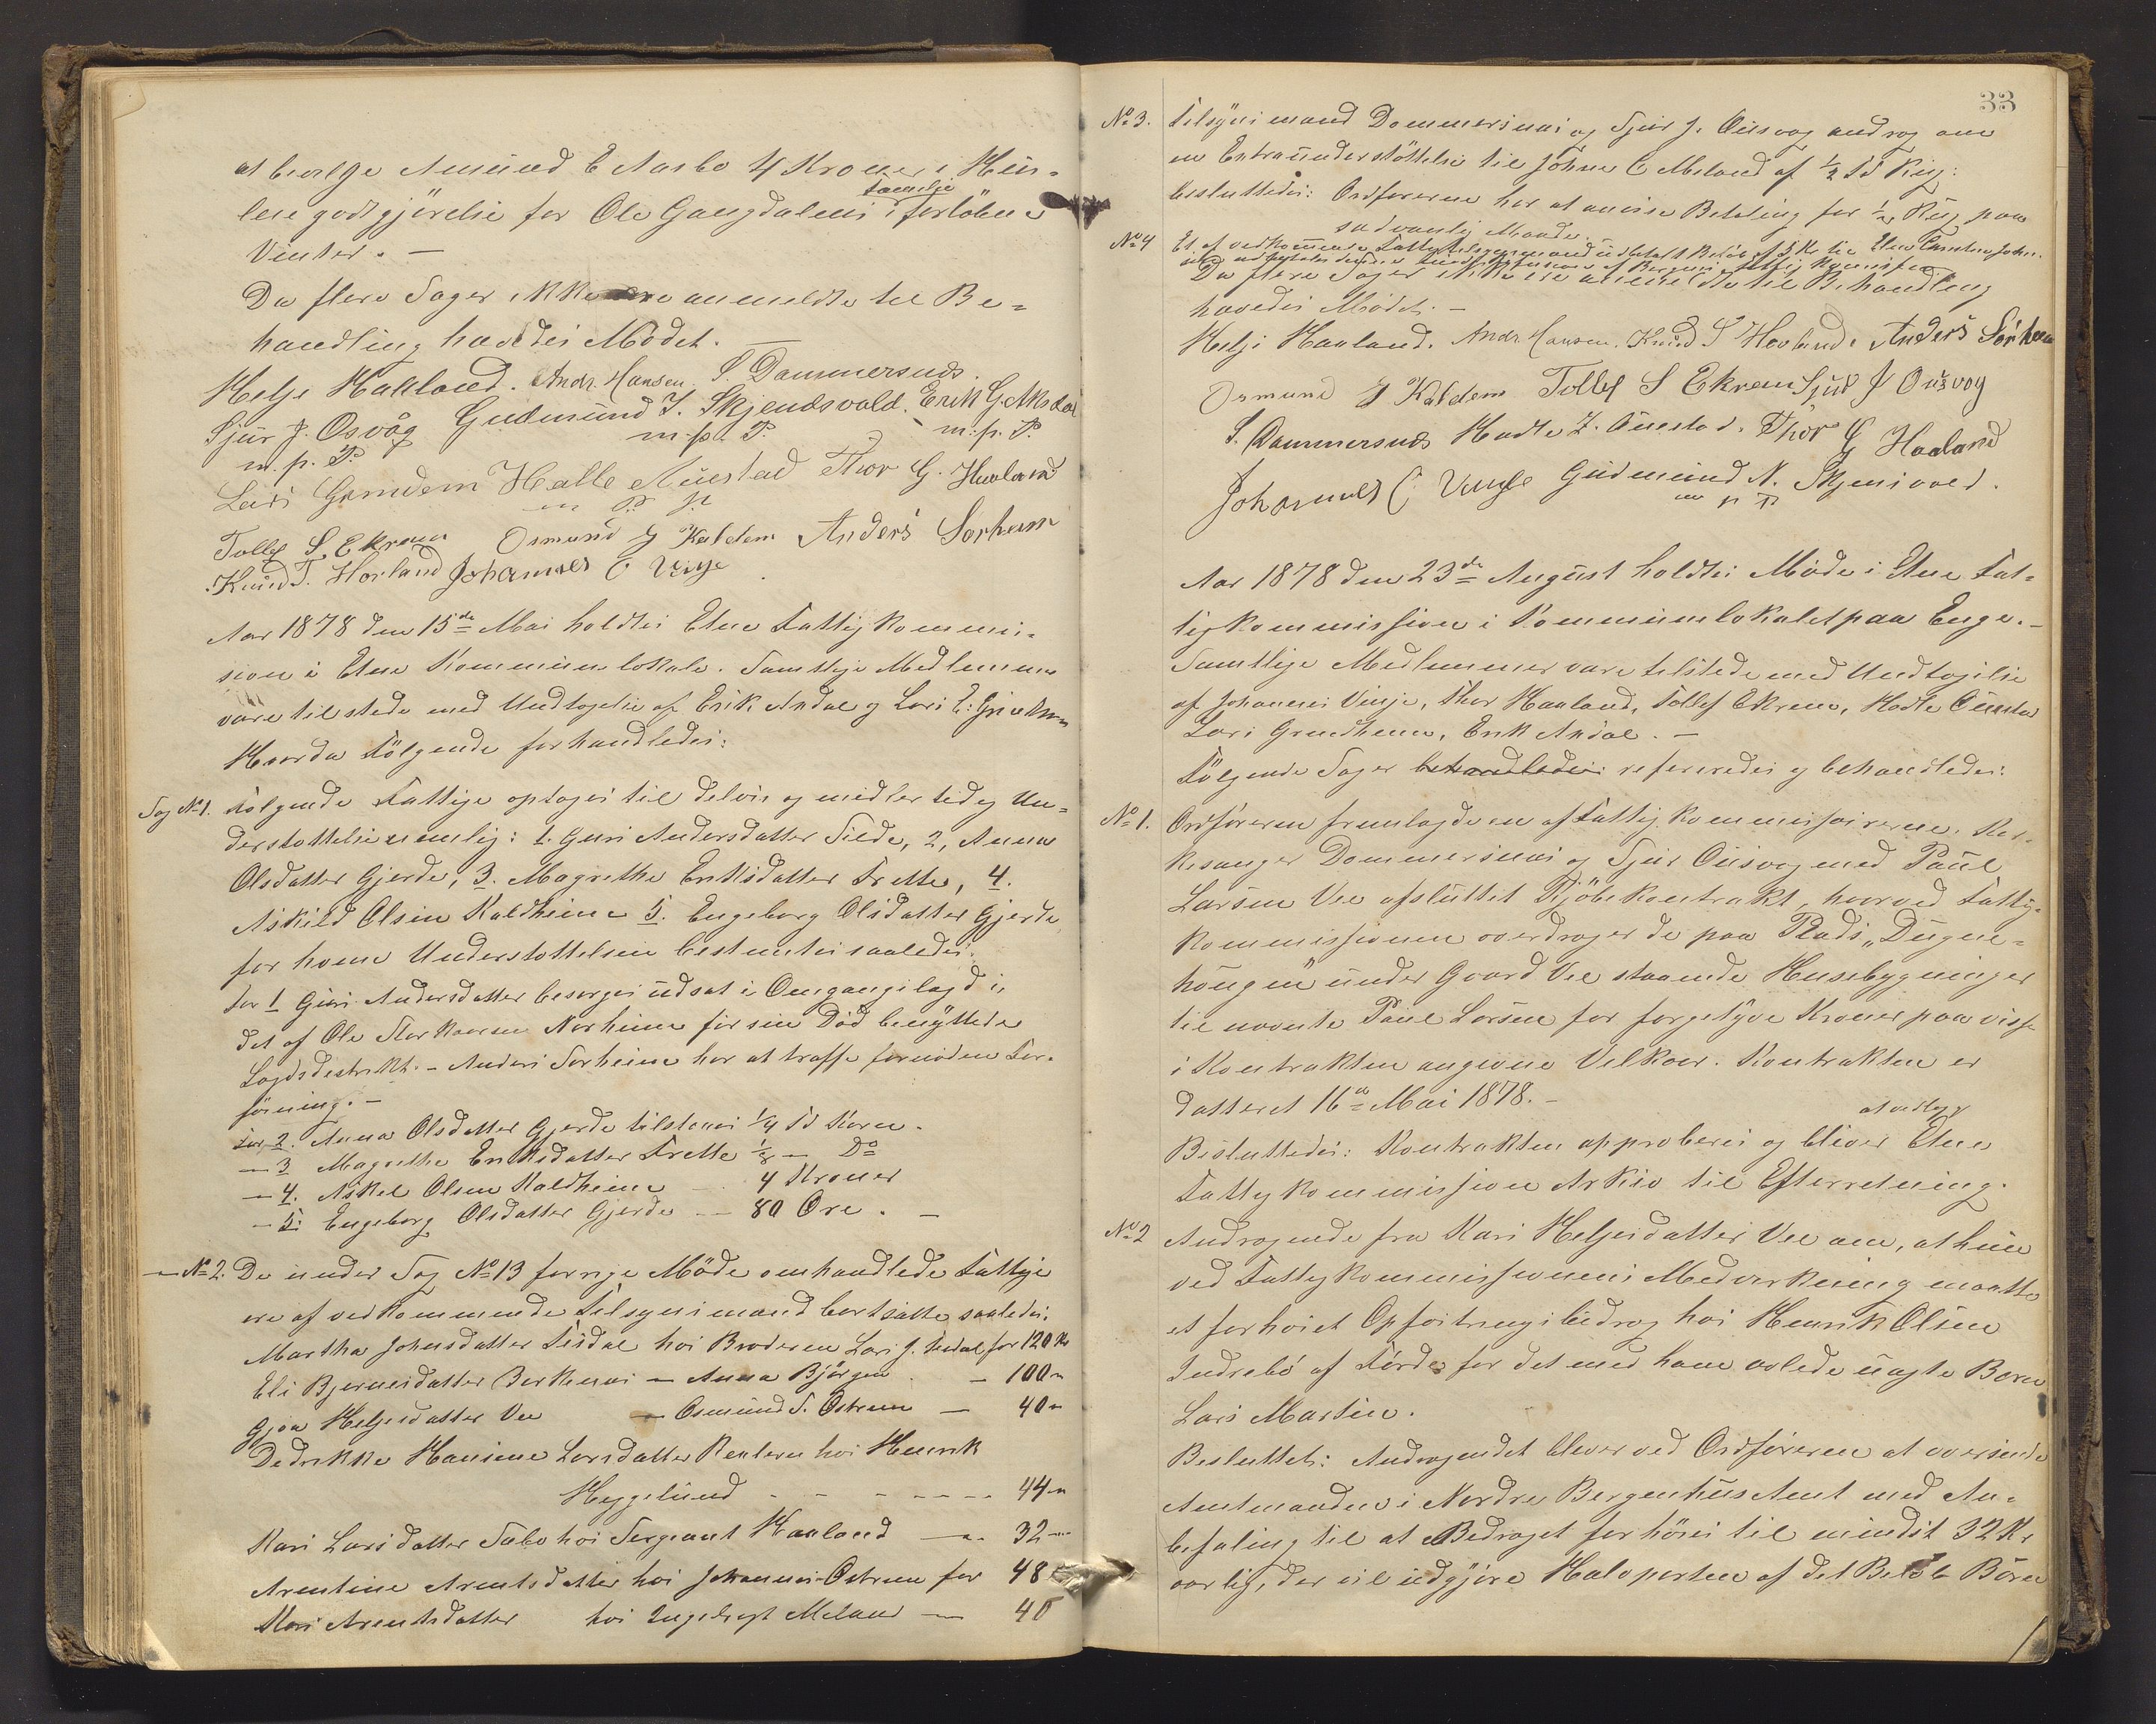 at bevilge Amund E Aarbo 4 Kroner i Hus-
familje
leie godtgjörelse for Ole Gangdalens i forløbne
Vinter. —
Da flere Sager ikke ere anmeldte til Be-
handling hævedes Mödet. —
Helje Haaland. Andr. Hansen S. Dammersnes.
Sjur J. Osvåg Gudmund J. Skjensvold. Erik G Aksdal
m. p. P. m. p. P. m. p. P.
Lars Grindem Halle Austad Thor G. Haaland
m P P
Tollef S. Ekrem Osmund J Kaldem Anders Sørheim
Knud T. Hovland Johannes C Vinje
Aar 1878 den 15de Mai holdtes Etne Fattigkommis-
sion i Etne Kommunelokale. Samtlige Medlemmer
vare tilstede med Undtagelse af Erik Axdal og Lars E: Grindheim
Hvorda Fölgende forhandledes:
Sag No 1. Fölgende Fattige optages til delvis og midlertidig Un-
derstøttelse nemlig: 1. Guri Andersdatter Silde, 2, Anna
Olsdatter Gjerde, 3. Magrethe Eriksdatter Frette, 4.
Askild Olsen Kaldheim 5. Engeborg Olsdatter Gjerde
for hvem Understøttelsen bestemtes saaledes:
For 1 Guri Andersdatter besørges udsat i Omgangslægd i
det af Ole Norheim før sin Död benyttede
Lægdsdistrikt. - Anders Sørheim har at træffe fornøden For-
föining. —
For 2. Anna Olsdatter Gjerde tilstaaes 1/4 Td Korn.
— 3 Magrethe Eriksdatter Frette 1/8 — Do
— 4. Askel Olsen Kaldheim — 4 Kroner
— 5: Engeborg Olsdatter Gjerde — 80 Øre. —
— No 2. De under Sag No 13 forrige Möde omhandlede Fattige
ere af vedkommende Tilsynsmand bortsatte saaledes:
Martha Johnsdatter Tesdal hos Broderen Lars J. Tesdal for 120 Kr
Eli Bjernesdatter — Anna Björgen — 100 "
Gjøa Heljesdatter Vee — Osmund S. Østrem — 40 "
Dedrikke Hansine Larsdatter hos Henrik
Heggelund - - - - - - 44 "
Kari Larsdatter Sæbø hos Sergeant Haaland — 32 "
Arentine Arentsdatter hos Johannes Østrem for 48
Kari Arentsdatter hos Ingebregt Meland — 40
33
No 3. Tilsynsmænd Dommersnes og Sjur J. Ousvag androg om
en Extraunderstöttelse til Johne C Meland af 1/2 Td Rug:
besluttedes: Ordføreren har at anvise Betaling for 1/2 Rug paa
sædvanlig Maade.
No 4 Et af vedkommende Fattigtilsynsmand udbetalt Beløb af 5 Kr til
af Bergens Fattigkomission
Da flere Sager ikke ere anmeldte til Behandling
hævedes Mödet. —
Helje Haaland. Andr. Hansen. Knud T Hovland. Anders Sørheim
Osmund J Kaldem Tollef S Ekrem Sjur J Ousvog
S. Dammersnes Halle Z. Austad. Thor G Haaland
Johannes C Vinje Gudmund N. Skjensvold.
m p P
Aar 1878 den 23de August holdtes Möde i Etne Fat-
tigkommission i Kommunelokalet paa Enge. —
Samtlige Medlemmer vare tilstede med Undtagelse
af Johannes Vinje, Thor Haaland, Tollef Ekrem, Halle Austad
Lars Grindheim, Erik Axdal. —
Fölgende Sager behandledes: refereredes og behandledes:
No 1. Ordföreren fremlagde en af Fattigkommissairerne. Kir-
kesanger Dommersnes og Sjur Ousvog med Paul
Larsen Vee afsluttet Kjöbekontrakt, hvorved Fattig-
kommissionen overdrager de paa Plads "Dugne-
hougen" under Gaard Vee staaende Husebygninger
til nævnte Paul Larsen for förgetyve Kroner paa visse
i Kontrakten angivne Vilkaar. Kontrakten er
datteret 16de Mai 1878. —
at vedlægge
Besluttedes: Kontrakten approberes og bliver Etne
Fattigkommission Arkiv til Efterretning.
No 2 Andragende fra Kari Heljesdatter Vee om, at hun
ved Fattigkommissionens Medvirkning maatte
et forhöiet Opfostringsbidrag hos Henrik Olsen
Indrebö af Förde for det med ham avlede uægte Barn
Lars Martin.
Besluttet: Andragendet bliver ved Ordföreren at oversende
Amtmanden i Nordre Bergenhus Amt med An-
befaling til at Bidraget forhöies til mindst 32 Kr
aarlig, der vil udgjöre Halvparten af det Belöb Börn